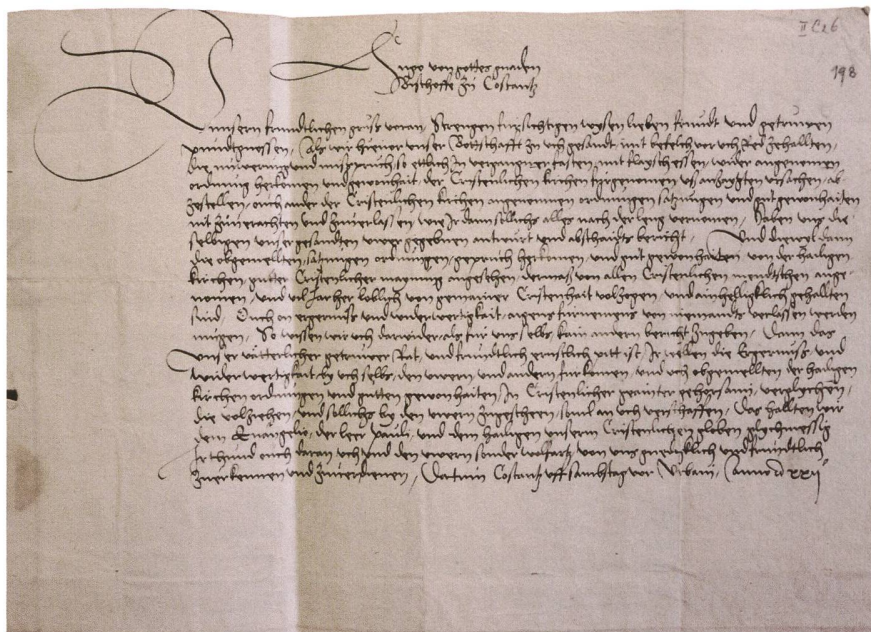 II C 26
198
Hugo von gottes gnaden
Bischoffe zu Costantz
unsern frundtlichen grůß voran, Strengen fursichtigen wysen lieben frundt und getruwen
pundtgnossen, Als wir hievor unser Bottschafft zu uch gesandt mit befelch vor uch Red zehallten,
die nuwerung und mißpruch, so ettlich in vergangner fasten, mit flaysch essen, wider angenomen
ordnung herkomen und gewonhait, der Cristenlichen kirchen furgenomen uß anzögten ursachen, ab
zestellen, ouch ander der Cristenlichen kirchen angenomnen ordnungen, satzungen und gut gewonhaiten
nit zuverachten und zuverlassen, wie Ir dann sollichs alles nach der leng vernomen, Haben uns die
selbigen unser gesandten uwer gegebnen antwurt und abschaids bericht, Und diewyl dann
die obgemellten, satzungen, ordnungen, gepruch, herkomen, und gut gewonhaiten von der hailigen
kirchen, guter Cristenlicher maynung angesehen, dermaß von allen Cristenlichen mentschen ange-
nomen, und vil Jar her loblich von gemainer Cristenhait volzogen, und ainhelligklich gehallten
sind, Ouch on ergernuß und widerwertigkait, aigens furnemens von niemants verlassen werden
mögen, So wissen wir uch darwider, als fur uns selbs, kain andern bericht zugeben, Dann das
unser vätterlicher getruwer Rat, und frundtlich ernstlich pitt ist, Ir wellen die Ergernuß und
widerwertigkait by uch selbs, den uwern und andern furkomen, und uch obgemellten der hailigen
kirchen ordnungen und gutten gewonhaiten, In Cristenlicher gehorsami, verglychen,
die volziehen, und sollichs by den uwern zugescheen, souil an uch verschaffen, Das hallten wir
dem Euangelio, der leer Pauli, und dem hailigen unserm Cristenlichen globen glychmessig
Ir thund ouch daran uch und den uwern sonder wolfart, von uns gnedigklich und frundtlich
zuerkennen und zuverdienen, Datum Costantz uff sambstag vor Urbani, Anno xxij